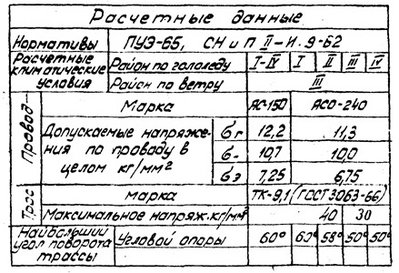 Расчетные данные
Нормативы ПУЭ-65, СН и П II-И.9-62
Расчетные климатические условия
Район по гололеду I-IV I II III IV
Район по ветру III
Провод
Марка АС-150 АСО-240
Допускаемые напряже-
ния по проводу в
целом кг/мм²
σг 12,2 11,3
σ- 10,7 10,0
σэ 7,25 6,75
Трос
Марка ТК-9,1 (ГОСТ 3063-66)
Максимальное напряж. кг/мм² 40 30
Наибольший
угол поворота
трассы
Угловой опоры 60° 60° 58° 50° 50°